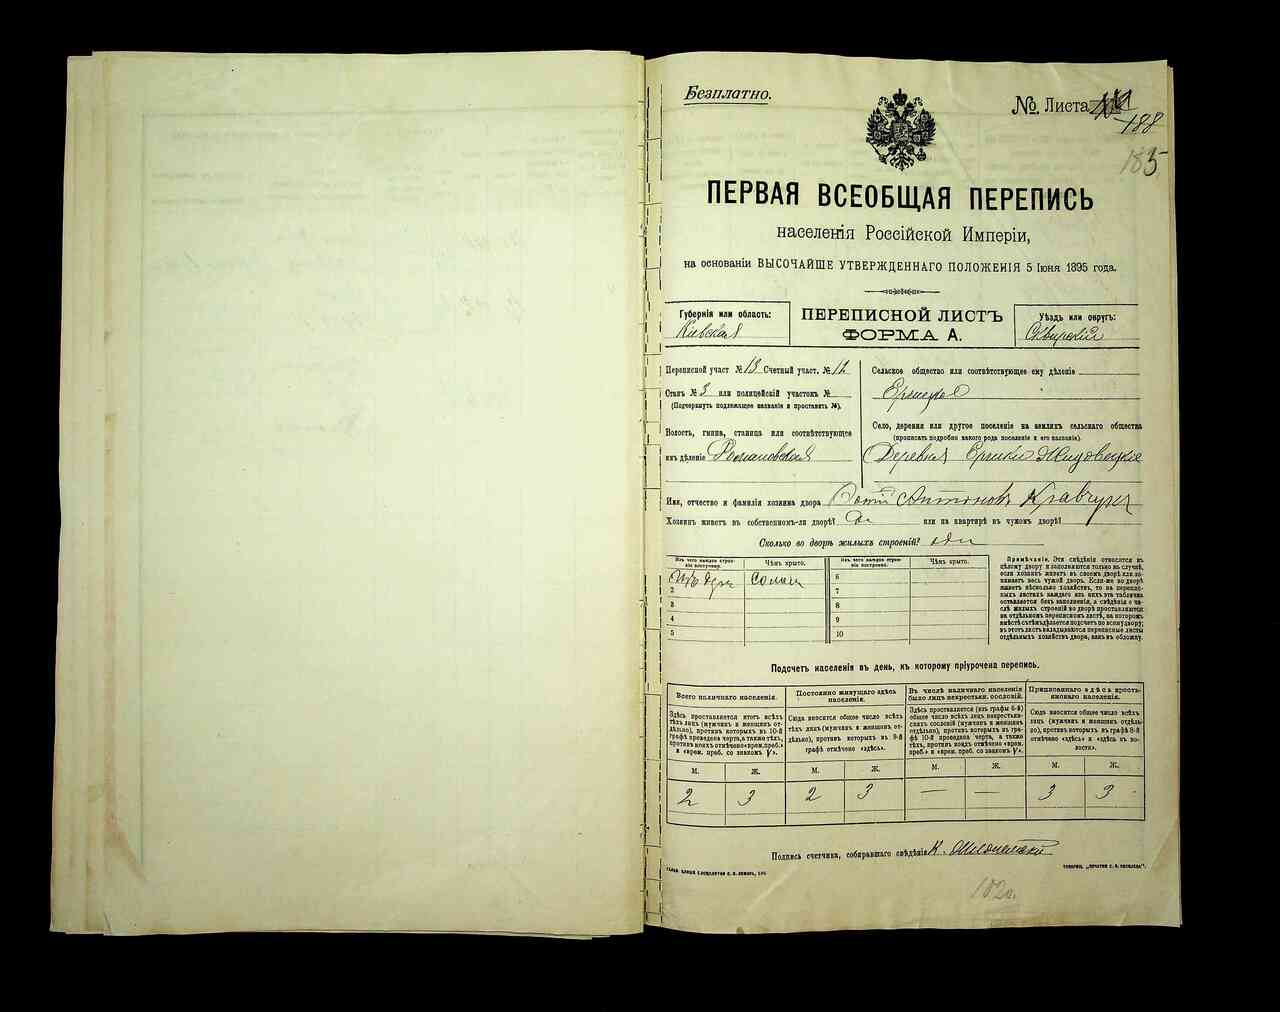 Безплатно.
№ Листа
188
185
ПЕРВАЯ ВСЕОБЩАЯ ПЕРЕПИСЬ
населенія Россійской Имперіи,
на основаніи ВЫСОЧАЙШЕ УТВЕРЖДЕННАГО ПОЛОЖЕНІЯ 5 Іюня 1895 года.
Губернія или область:
Киевская
ПЕРЕПИСНОЙ ЛИСТЪ
ФОРМА А.
Уѣздъ или округъ:
Сквирскій
Переписной участ № 13 Счетный участ. № 12
Станъ № 3 или полицейскій участокъ №
(Подчеркнуть подлежащее названіе и проставить №).
Волость, гмина, станица или соотвѣтствующее
имъ дѣленіе Романовская
Сельское общество или соотвѣтствующее ему дѣленіе
Село, деревня или другое поселеніе на земляхъ сельскаго общества
(прописать подробно какого рода поселеніе и его названіе).
Деревня Ерчики Жидовецкіе
Имя, отчество и фамилія хозяина двора Фотій Антоновъ Кравчукъ
Хозяинъ живетъ въ собственномъ-ли дворѣ? Да или на квартирѣ въ чужомъ дворѣ?
Сколько во дворѣ жилыхъ строеній?
Изъ чего каждое строеніе построено. Чѣмъ крыто. Изъ чего каждое строеніе построено. Чѣмъ крыто.
Изъ дер. Солом. 6
2 7
3 8
4 9
5 10
Примѣчаніе. Эти свѣдѣнія относятся къ
цѣлому двору и заполняются только въ случаѣ,
если хозяинъ живетъ въ своемъ дворѣ или за-
нимаетъ весь чужой дворъ. Если-же во дворѣ
живетъ нѣсколько хозяйствъ, то на перепис-
ныхъ листахъ каждаго изъ нихъ эта табличка
оставляется безъ заполненія, а свѣдѣнія о чи-
слѣ жилыхъ строеній во дворѣ проставляются
на отдѣльномъ переписномъ листѣ, на которомъ
вмѣстѣ съ тѣмъ дѣлается подсчетъ по всему двору;
въ этотъ листъ вкладываются переписные листы
отдѣльныхъ хозяйствъ двора, какъ въ обложку.
Подсчетъ населенія въ день, къ которому пріурочена перепись.
Всего наличнаго населенія.
Здѣсь проставляется итогъ всѣхъ
тѣхъ лицъ (мужчинъ и женщинъ от-
дѣльно), противъ которыхъ въ 10-й
графѣ проведена черта, а также тѣхъ,
противъ коихъ отмѣчено «врем. преб.»
и «врем. преб. со знакомъ V».
Постоянно живущаго здѣсь
населенія.
Сюда вносится общее число всѣхъ
тѣхъ лицъ (мужчинъ и женщинъ от-
дѣльно), противъ которыхъ въ 9-й
графѣ отмѣчено «здѣсь».
Въ числѣ наличнаго населенія
было лицъ некрестьян. сословій.
Здѣсь проставляется (изъ графы 6-й)
общее число всѣхъ лицъ некрестьян-
скихъ сословій (мужчинъ и женщинъ
отдѣльно), противъ которыхъ въ гра-
фѣ 10-й проведена черта, а также
тѣхъ, противъ коихъ отмѣчено «врем.
преб.» и «врем. преб. со знакомъ V».
Приписаннаго здѣсь кресть-
янскаго населенія.
Сюда вносится общее число всѣхъ
лицъ (мужчинъ и женщинъ отдѣль-
но), противъ которыхъ въ графѣ 8-й
отмѣчено «здѣсь» и «здѣсь къ во-
лости».
М. Ж. М. Ж. М. Ж. М. Ж.
2 3 2 3 — — 3 3
Подпись счетчика, собиравшаго свѣдѣнія К.